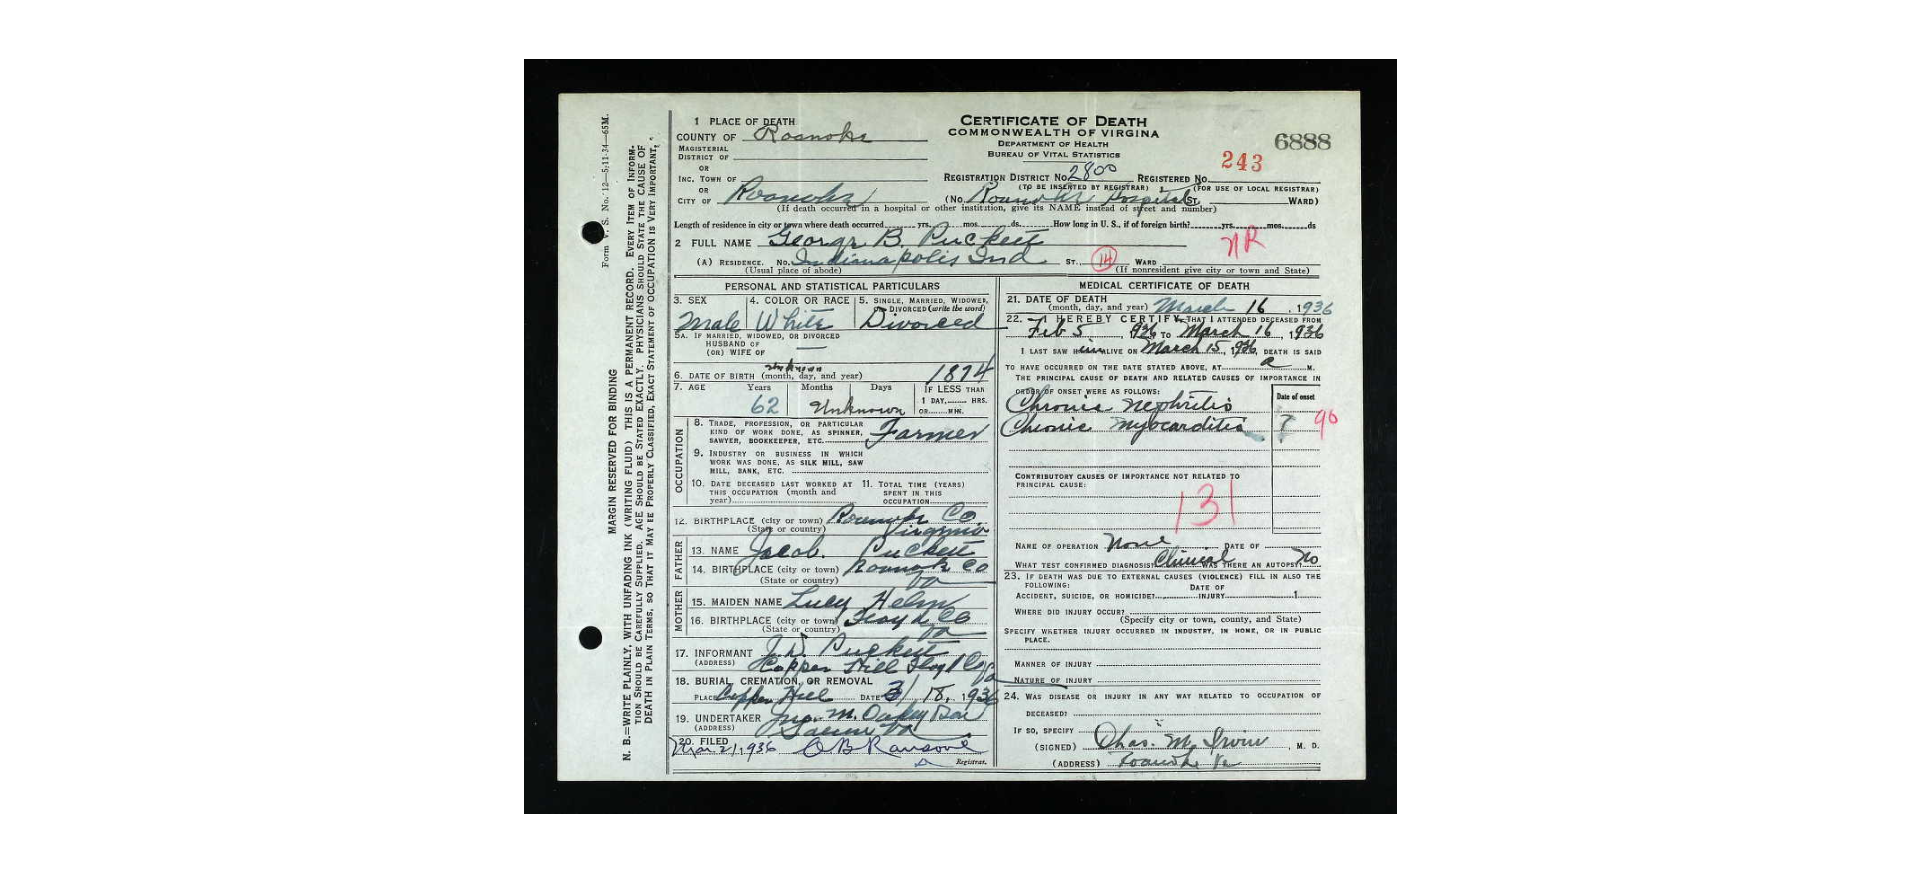 1 PLACE OF DEATH
COUNTY OF Roanoke
MAGISTERIAL
DISTRICT OF
OR
INC. TOWN OF
OR
CITY OF Roanoke
CERTIFICATE OF DEATH
COMMONWEALTH OF VIRGINA
DEPARTMENT OF HEALTH
BUREAU OF VITAL STATISTICS
6888
243
REGISTRATION DISTRICT NO. 2800 REGISTERED NO.
(TO BE INSERTED BY REGISTRAR) (FOR USE OF LOCAL REGISTRAR)
(No. Roanoke Hospital ST. WARD)
(If death occurred in a hospital or other institution, give its NAME instead of street and number)
Length of residence in city or town where death occurred yrs. mos. ds. How long in U. S., if of foreign birth? yrs. mos. ds
2 FULL NAME George B. Puckett
NR
(A) RESIDENCE. No. Indianapolis Ind ST. 14 WARD
(Usual place of abode) (If nonresident give city or town and State)
PERSONAL AND STATISTICAL PARTICULARS
3. SEX 4. COLOR OR RACE 5. SINGLE, MARRIED, WIDOWED,
OR DIVORCED (write the word)
Male White Divorced
5A. IF MARRIED, WIDOWED, OR DIVORCED
HUSBAND OF
(OR) WIFE OF
6. DATE OF BIRTH (month, day, and year) Unknown 1874
7. AGE Years Months Days IF LESS THAN
1 DAY, HRS.
62 Unknown OR MIN.
OCCUPATION
8. TRADE, PROFESSION, OR PARTICULAR
KIND OF WORK DONE, AS SPINNER,
SAWYER, BOOKKEEPER, ETC. Farmer
9. INDUSTRY OR BUSINESS IN WHICH
WORK WAS DONE, AS SILK MILL, SAW
MILL, BANK, ETC.
10. DATE DECEASED LAST WORKED AT 11. TOTAL TIME (YEARS)
THIS OCCUPATION (month and SPENT IN THIS
year) OCCUPATION
12. BIRTHPLACE (city or town) Roanoke Co
(State or country) Virginia
FATHER
13. NAME Jacob. Puckett
14. BIRTHPLACE (city or town) Roanoke Co
(State or country) Va
MOTHER
15. MAIDEN NAME Lucy Helm
16. BIRTHPLACE (city or town) Floyd Co
(State or country) Va
17. INFORMANT J. D. Puckett
(ADDRESS) Copper Hill Floyd Co Va
18. BURIAL, CREMATION, OR REMOVAL
PLACE Copper Hill DATE 3/18, 1936
19. UNDERTAKER Jno. M. Oakey Son
(ADDRESS) Salem Va
20. FILED
Mar 21, 1936 O B Ransone
Registrar.
MEDICAL CERTIFICATE OF DEATH
21. DATE OF DEATH
(month, day, and year) March 16, 1936
22. I HEREBY CERTIFY, THAT I ATTENDED DECEASED FROM
Feb 5, 1936, TO March 16, 1936
I LAST SAW HIM ALIVE ON March 15, 1936, DEATH IS SAID
TO HAVE OCCURRED ON THE DATE STATED ABOVE, AT a M.
THE PRINCIPAL CAUSE OF DEATH AND RELATED CAUSES OF IMPORTANCE IN
ORDER OF ONSET WERE AS FOLLOWS: Date of onset
Chronic Nephritis
Chronic Myocarditis ? 90
CONTRIBUTORY CAUSES OF IMPORTANCE NOT RELATED TO
PRINCIPAL CAUSE:
131
NAME OF OPERATION None DATE OF
WHAT TEST CONFIRMED DIAGNOSIS? Clinical WAS THERE AN AUTOPSY? No
23. IF DEATH WAS DUE TO EXTERNAL CAUSES (VIOLENCE) FILL IN ALSO THE
FOLLOWING:
DATE OF
ACCIDENT, SUICIDE, OR HOMICIDE? INJURY 1
WHERE DID INJURY OCCUR?
(Specify city or town, county, and State)
SPECIFY WHETHER INJURY OCCURRED IN INDUSTRY, IN HOME, OR IN PUBLIC
PLACE.
MANNER OF INJURY
NATURE OF INJURY
24. WAS DISEASE OR INJURY IN ANY WAY RELATED TO OCCUPATION OF
DECEASED?
IF SO, SPECIFY
(SIGNED) Chas. M. Irvin, M. D.
(ADDRESS) Roanoke Va
Form V. S. No. 12—5-11-34—65M.
MARGIN RESERVED FOR BINDING
N. B.—WRITE PLAINLY, WITH UNFADING INK (WRITING FLUID) THIS IS A PERMANENT RECORD. EVERY ITEM OF INFORM-
TION SHOULD BE CAREFULLY SUPPLIED. AGE SHOULD BE STATED EXACTLY. PHYSICIANS SHOULD STATE THE CAUSE OF
DEATH IN PLAIN TERMS, SO THAT IT MAY BE PROPERLY CLASSIFIED. EXACT STATEMENT OF OCCUPATION IS VERY IMPORTANT.